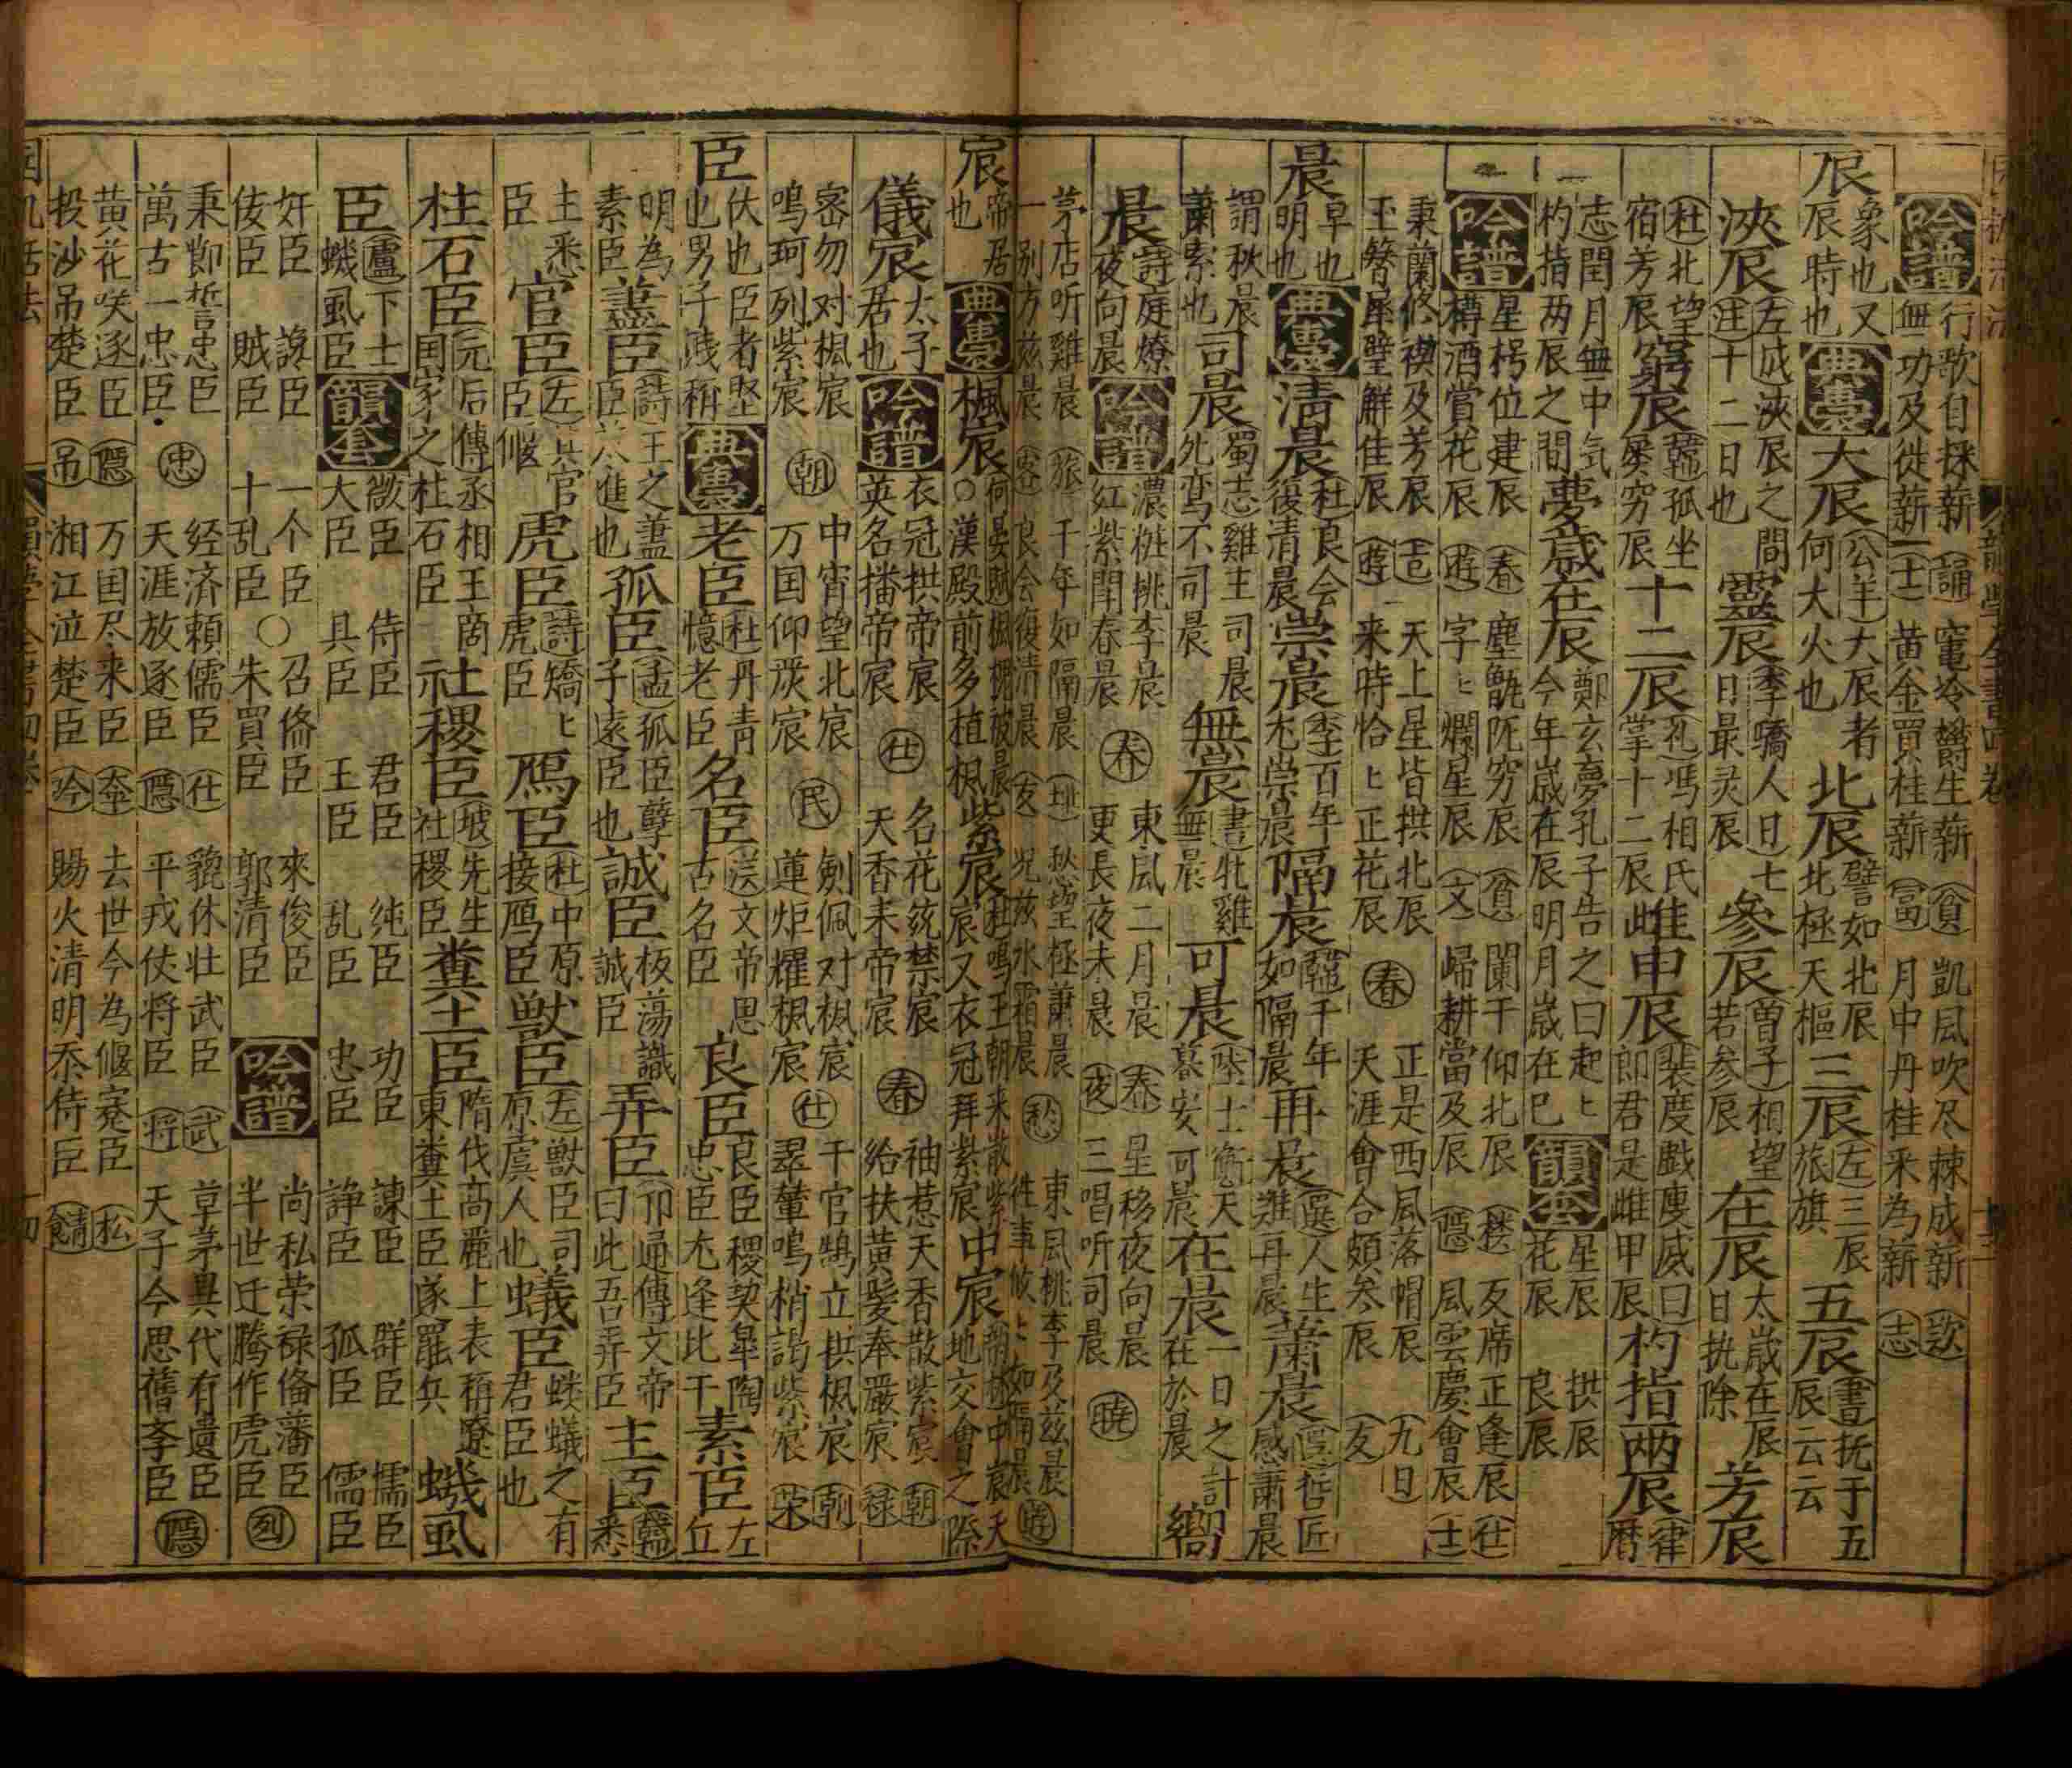 吟譜 行歌自採薪 誦 竃冷欝生薪 貧 凱風吹尽棘成新 歎
無功及徙薪 士 黄金買桂薪 富 月中丹桂采為薪 志
辰 象也又辰時也 典要 大辰 公羊大辰者何大火也 北辰 譬如北辰北極天樞 三辰 左三辰旅旗 五辰 書抚于五辰云云
浹辰 左成浹辰之間注十二日也 靈辰 李嶠人日七日最灵辰 參辰 曽子相望若参辰 在辰 太歳在辰日執除 芳辰
杜北望宿芳辰 窮辰 韓孤坐屡穷辰 十二辰 礼馮相氏掌十二辰 雌申辰 裴度戯庾威曰郎君是雌甲辰 杓指两辰 律暦
志閏月無中气杓指两辰之間 夢歳在辰 鄭玄夢孔子告之曰起〻今年歳在辰明月歳在巳 韻套 星辰 花辰 拱辰 良辰
吟譜 星枵位建辰 春 塵甑阨穷辰 貧 闌干仰北辰 楼 友席正逢辰 仕
樽酒賞花辰 遊 字〻爛星辰 文 歸耕當及辰 隠 風雲慶會辰 士
秉蘭修禊及芳辰 天上星皆拱北辰 春 正是西風落帽辰 九日
玉簪犀壁解佳辰 遊 来時恰〻正花辰 天涯會合頗参辰 友
晨 早也明也 典要 清晨 杜良会復清晨 崇晨 李百年尤崇晨 隔晨 韓千年如隔晨 再晨 選人生難再晨 蕭晨 選哲匠感蕭晨
謂秋晨蕭索也 司晨 蜀志雞主司晨 鸞不司晨 無晨 書牝雞無晨 可晨 陸士衡天暮安可晨 在晨 一日之計在於晨 嚮
晨 詩庭燎夜向晨 吟譜 濃桃桃李晨 紅紫閙春晨 春 東風二月晨 春 更長夜未晨 夜 星移夜向晨 三唱听司晨 暁
茅店听雞晨 旅 千年如隔晨 愁望極蕭晨 愁 東風桃李及茲晨 遊
一别方茲晨 客 良会復清晨 友 况茲氷霜晨 徃事攸〻如隔晨
宸 帝居也 典要 楓宸 何晏賦楓槐被宸○漢殿前多植楓 紫宸 杜鳴玉朝来散紫宸又衣冠拜紫宸 中宸 中宸天地交會之際
儀宸 太子居也 吟譜 衣冠拱帝宸 仕 名花兹禁宸 春 袖惹天香散紫宸 朝
英名播帝宸 天香未帝宸 給扶黄髮奉嚴宸 禄
密勿对楓宸 朝 中宵望北宸 民 劍佩对楓宸 仕 千官鵠立拱楓宸 朝
鳴珂列紫宸 万国仰茂宸 蓮炬耀楓宸 翠輦鳴梢謁紫宸 荣
臣 伏也臣者堅也男子賎稱 典要 老臣 杜丹青憶老臣 名臣 送文帝思古名臣 良臣 良臣稷契皐陶忠臣尤逢比干 素臣 左丘
明為素臣 藎臣 詩王之藎臣 臣進也 孤臣 孟孤臣孽子遠臣也 誠臣 板蕩識誠臣 弄臣 卬通傳文帝曰此吾弄臣 主臣 韓悉
臣 官臣 左其官臣偃 虎臣 詩矯〻虎臣 鴈臣 杜中原接鴈臣 獸臣 左獸臣司原虞人也 蟻臣 蚍蟻之有君臣也
柱石臣 元后傳丞相王啇国家之柱石臣 社稷臣 坡先生社稷臣 糞土臣 隋伐高麗上表稱遼東糞土臣遂罷兵 蟣虱
臣 盧下士蟣虱臣 韻套 微臣 大臣 侍臣 具臣 君臣 王臣 純臣 乱臣 功臣 忠臣 諫臣 諍臣 群臣 孤臣 懦臣 儒臣
奸臣 讒臣 一个臣 ○ 召偹臣 來俊臣 吟譜 尚私荣禄偹藩臣 列
佞臣 賊臣 十乱臣 朱買臣 郭清臣 半世迁騰作虎臣
秉節誓忠臣 忠 经済頼儒臣 仕 貔休壮武臣 武 草茅異代有遺臣 隠
萬古一忠臣 天涯放逐臣 隠 平戎仗将臣 将 天子今思舊李臣
黄花咲逐臣 隠 万国尽来臣 去世今為偃蹇臣 松
投沙吊楚臣 吊 湘江泣楚臣 吟 賜火清明忝侍臣 請